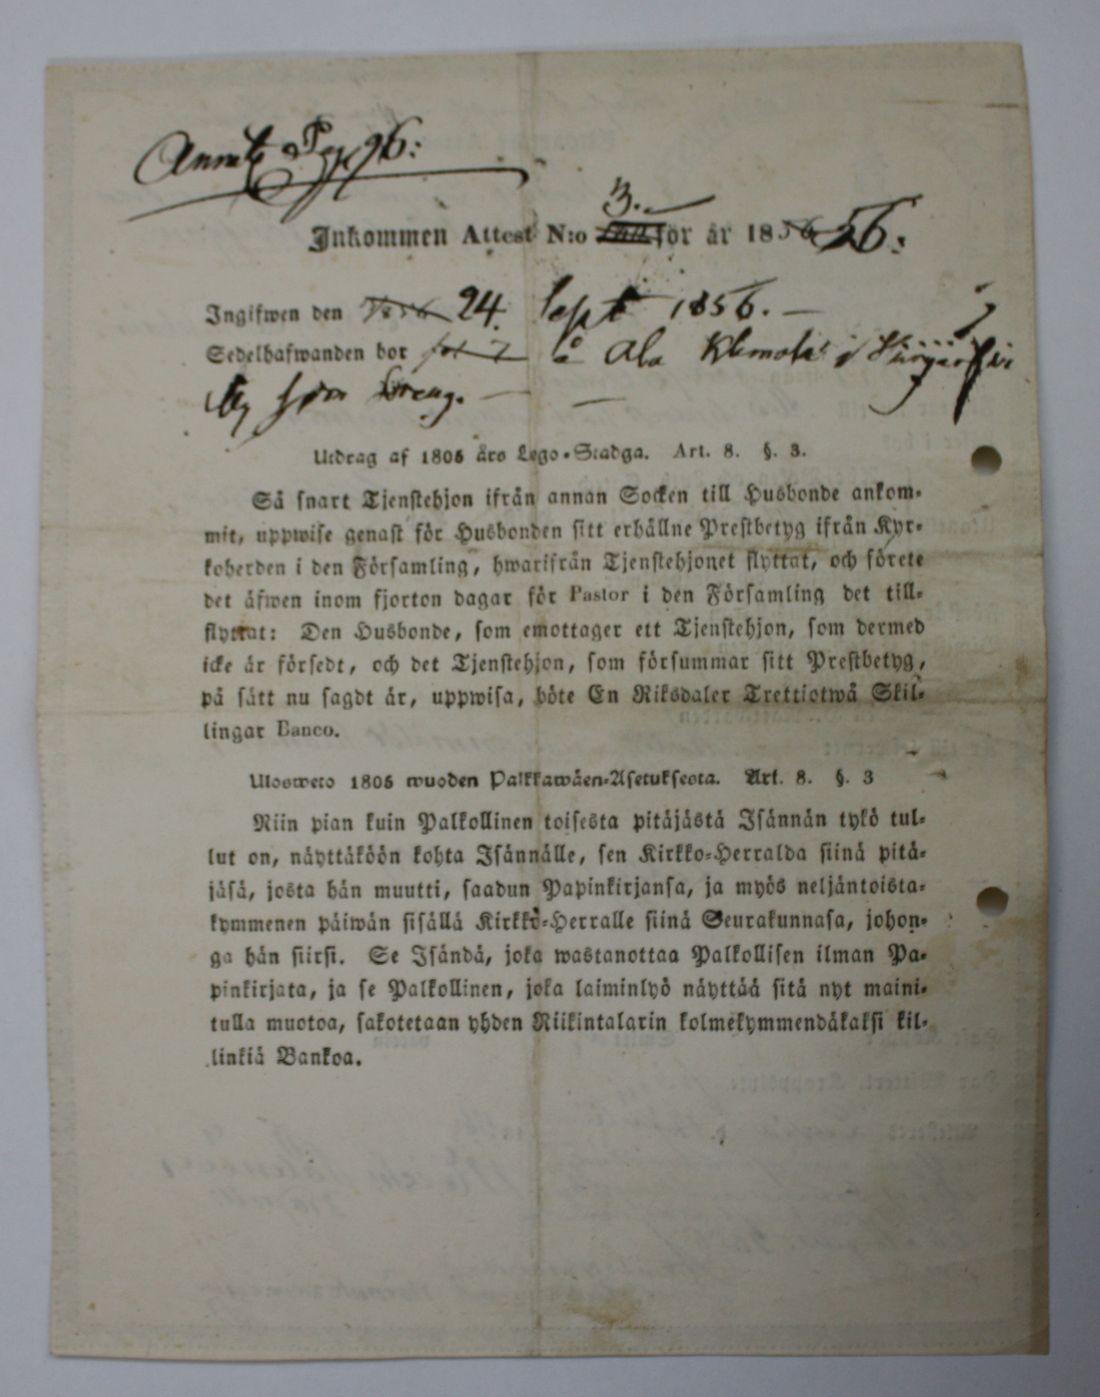 Pag 96:
3.
Inkommen Attest N:o för år 1856 56.
Ingifwen den 24. Sept 1856. —
Sedelhafwanden bor å Ala i
som Dreng. —
Utdrag af 1805 års Lego-Stadga. Art. 8. §. 3.
Så snart Tjenstehjon ifrån annan Socken till Husbonde ankom-
mit, uppwise genast för Husbonden sitt erhållne Prestbetyg ifrån Kyr-
koherden i den Församling, hwarifrån Tjenstehjonet flyttat, och förete
det äfwen inom fjorton dagar för Pastor i den Församling det till-
flyttat: Den Husbonde, som emottager ett Tjenstehjon, som dermed
icke är försedt, och det Tjenstehjon, som försummar sitt Prestbetyg,
på sätt nu sagdt är, uppwisa, böte En Riksdaler Trettiotwå Skil-
lingar Banco.
Ulosweto 1805 wuoden Palkkawäen-Asetuksesta. Art. 8. §. 3
Niin pian kuin Palkollinen toisesta pitäjästä Isännän tykö tul-
lut on, näyttäköön kohta Isännälle, sen Kirkko-Herralda siinä pitä-
jäsä, josta hän muutti, saadun Papinkirjansa, ja myös neljäntoista-
kymmenen päiwän sisällä Kirkko-Herralle siinä Seurakunnasa, johon-
ga hän siirsi. Se Isändä, joka wastanottaa Palkollisen ilman Pa-
pinkirjata, ja se Palkollinen, joka laiminlyö näyttää sitä nyt maini-
tulla muotoa, sakotetaan yhden Riikintalarin kolmekymmendäkaksi kil-
linkiä Bankoa.